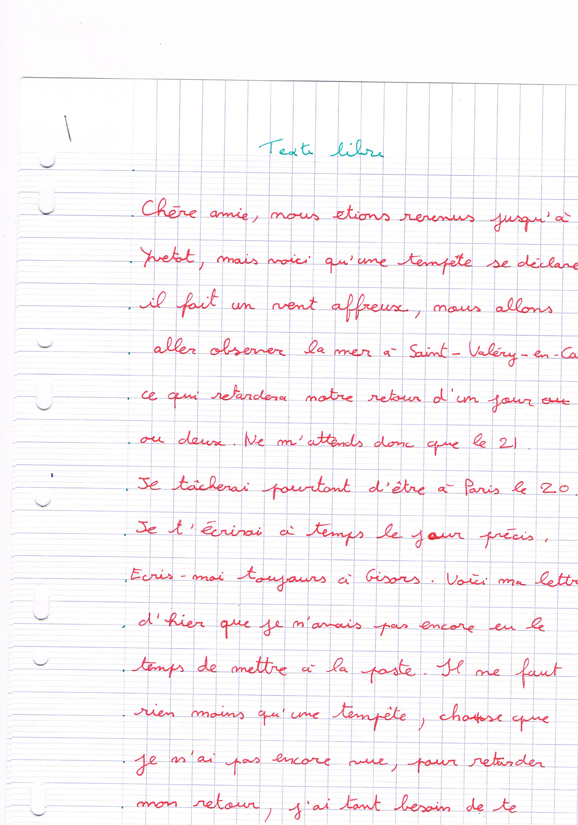 Texte libre
Chère amie, nous etions revenus jusqu'à
Yvetot, mais voici qu'une tempête se déclare
il fait un vent affreux, nous allons
aller observer la mer à Saint-Valéry-en-Ca
ce qui retardera notre retour d'un jour ou
ou deux. Ne m'attends donc que le 21
Je tâcherai pourtant d'être à Paris le 20.
Je t'écrirai à temps le jour précis.
Ecris-moi toujours à Gisors. Voici ma lettre
d'hier que je n'avais pas encore eu le
temps de mettre à la poste. Il ne faut
rien moins qu'une tempête, chose que
je n'ai pas encore vue, pour retarder
mon retour, j'ai tant besoin de te